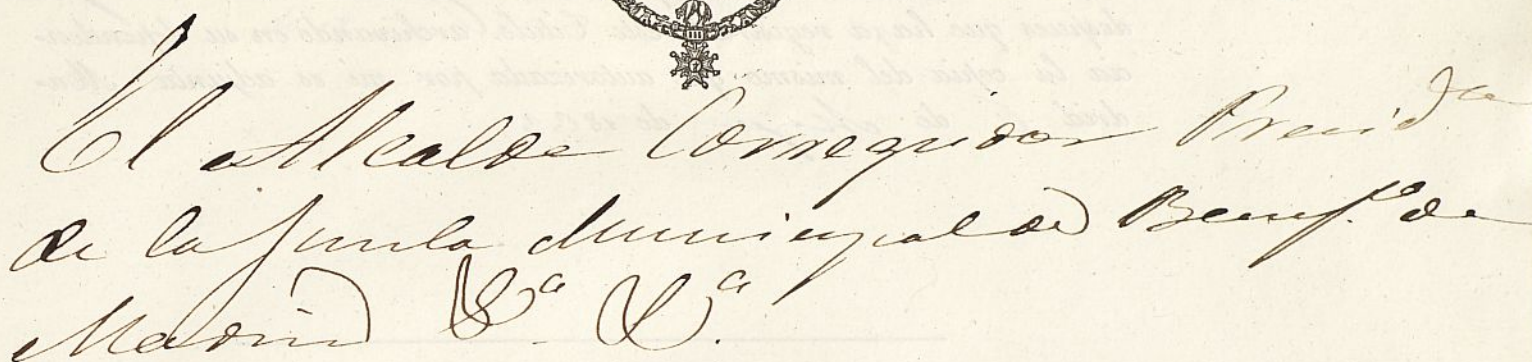 El Alcalde Corregidor Presid.te
de la Junta Municipal de Benef.a de
Madrid &.a &.a